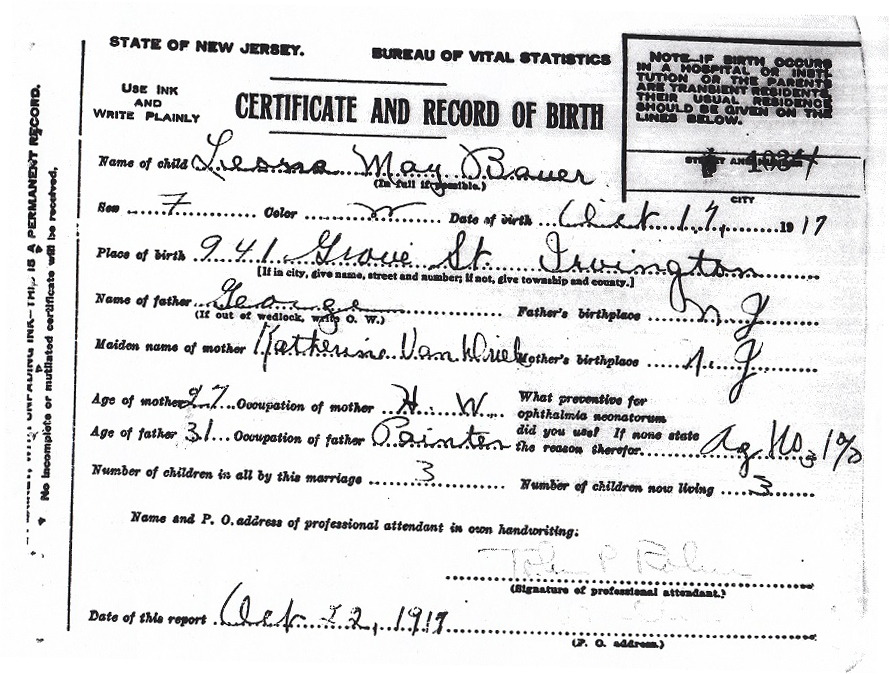 STATE OF NEW JERSEY. BUREAU OF VITAL STATISTICS
NOTE—IF BIRTH OCCURS
IN A HOSPITAL OR INSTI-
TUTION OR THE PARENTS
ARE TRANSIENT RESIDENTS
THEIR USUAL RESIDENCE
SHOULD BE GIVEN ON THE
LINES BELOW.
USE INK
AND
WRITE PLAINLY
CERTIFICATE AND RECORD OF BIRTH
STREET AND
CITY
Name of child May Bauer
(In full if possible.)
Sex F Color W Date of birth Oct 17, 1917
Place of birth 941 Grove St. Irvington
[If in city, give name, street and number; if not, give township and county.]
Name of father George Father's birthplace N J
(If out of wedlock, write O. W.)
Maiden name of mother Katherine Van Mother's birthplace N. J
Age of mother 27 Occupation of mother H. W. What preventive for
ophthalmia neonatorum
did you use? If none state
Age of father 31 Occupation of father Painter the reason therefor. Ag NO3 1%
Number of children in all by this marriage 3 Number of children now living 3
Name and P. O. address of professional attendant in own handwriting:
John P
(Signature of professional attendant.)
Date of this report Oct 22, 1917
(P. O. address.)
THIS IS A PERMANENT RECORD.
No incomplete or mutilated certificate will be received.